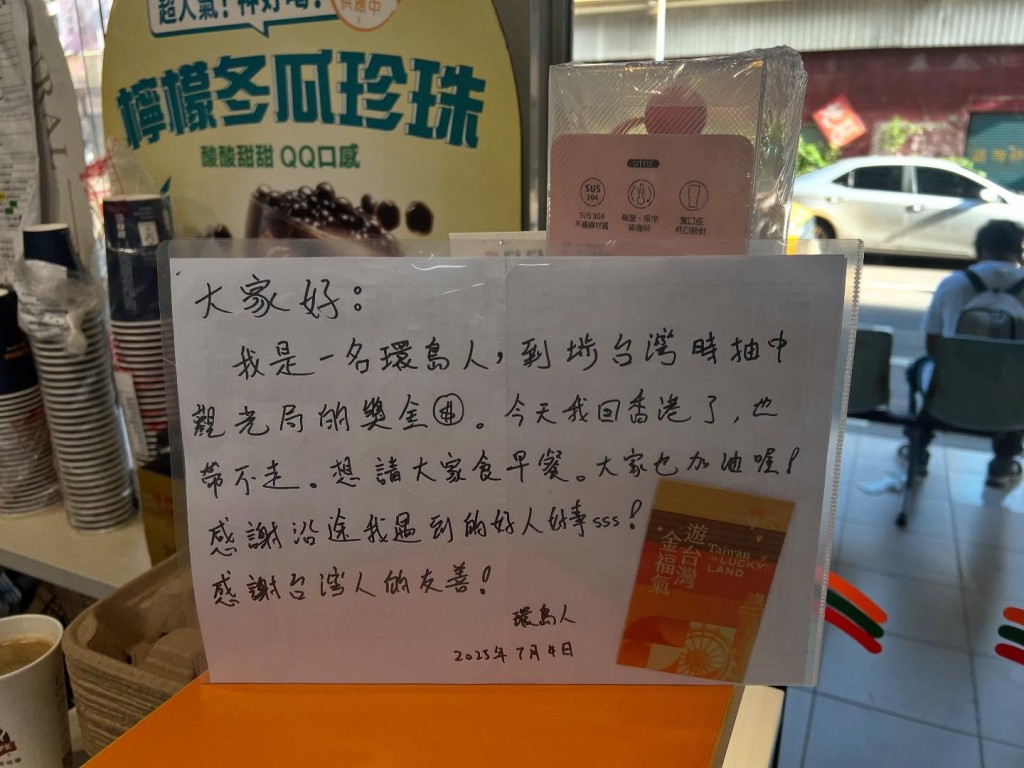 超人氣! 神好喝!
供應中
檸檬冬瓜珍珠
酸酸甜甜 QQ口感
SUS
304
SUS 304
大家好:
我是一名環島人,到埗台灣時抽中
觀光局的獎金。今天我回香港了,也
帶不走。想請大家食早餐。大家也加油喔!
感謝沿途我遇到的好人好事sss!
感謝台灣人的友善!
環島人
2025年7月4日
遊台灣
金福氣
Taiwan
LUCKY
LAND